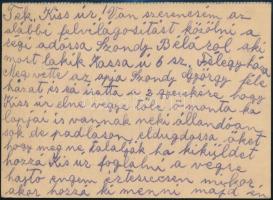 Tek. Kiss úr! Van szerencsém az
alábbi felvilágosítást közölni a
régi adósa Szondy Béláról aki
most lakik Kassa u 6 sz. Félegyháza
Meg vette az apja Szondy György féle
házat és rá íratta a 2 gyerekére hogy
Kiss úr elne vegye tőle ő monta ka
lapjai is vannak neki állandóan
sok de padláson eldugdossa őket
hogy meg ne találják ha kiküldet
hozzá Kis úr foglalni a végre
hajtó engem értesítsen mikor
akar hozzá ki menni majd én